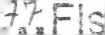 77 Fls